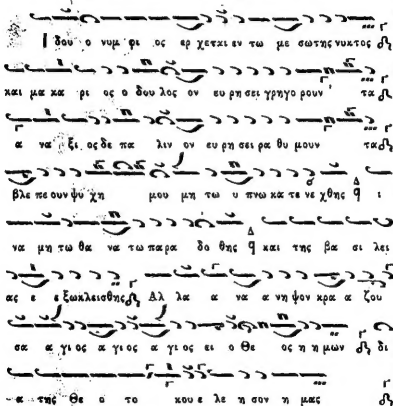 Ι δου ο νυμ φι ος ερ χεται εν τω με σω της νυκτος
και μα κα ρι ος ο δου λος ον ευ ρη σει γρηγορουν τα
α να ξι ος δε πα λιν ον ευ ρη σει ρα θυ μουν τα
βλε πε ουν ψυ χη μου μη τω υ πνω κα τε νε χθης ι
να μη τω θα να τω παρα δο θης και της βα σι λει
ας ε ε ξω κλεισθης Αλ λα α να α νη ψον κρα α ζου
σα α γι ος α γι ος α γι ος ει ο Θε ος η η μων δι
α της Θε ο το κου ε λε η σον η μας